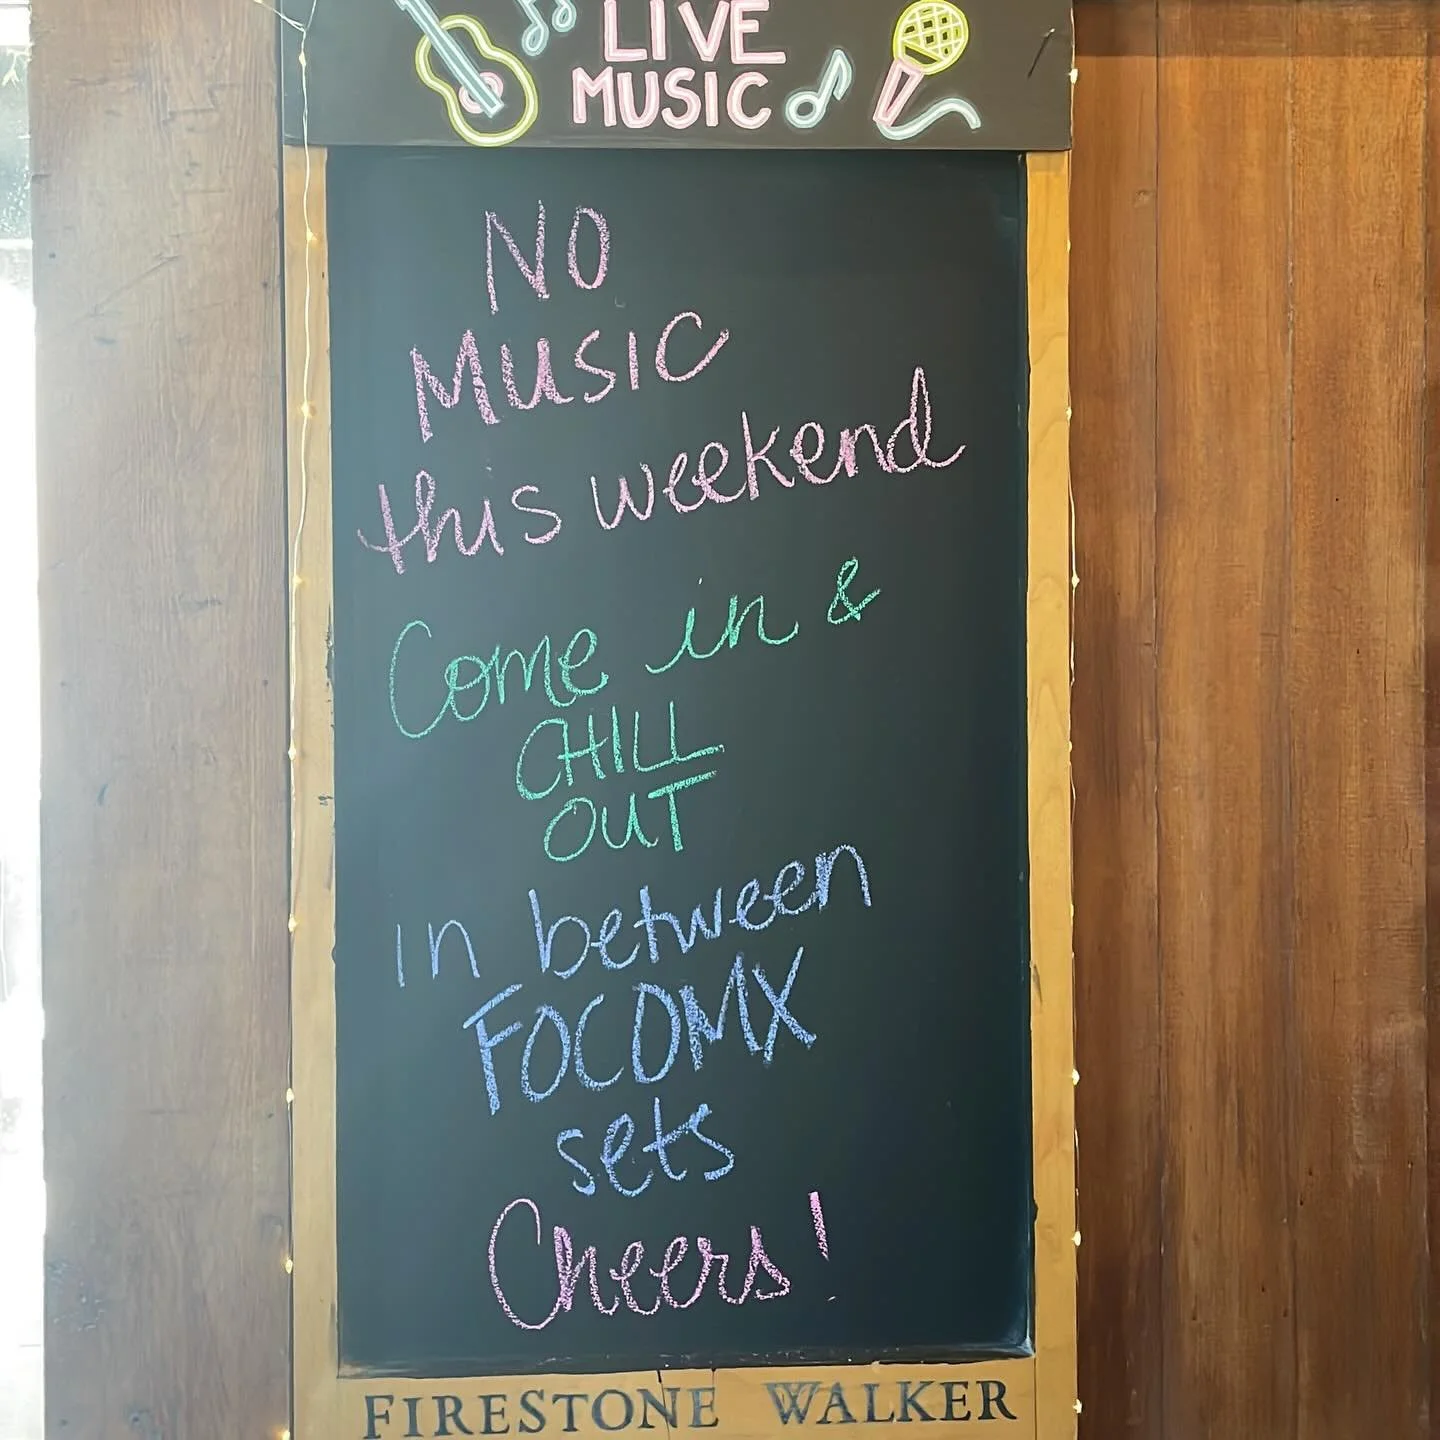 LIVE
MUSIC
NO
MUSIC
this weekend
Come in &
CHILL
OUT
in between
FOCOMX
sets
Cheers!
FIRESTONE WALKER